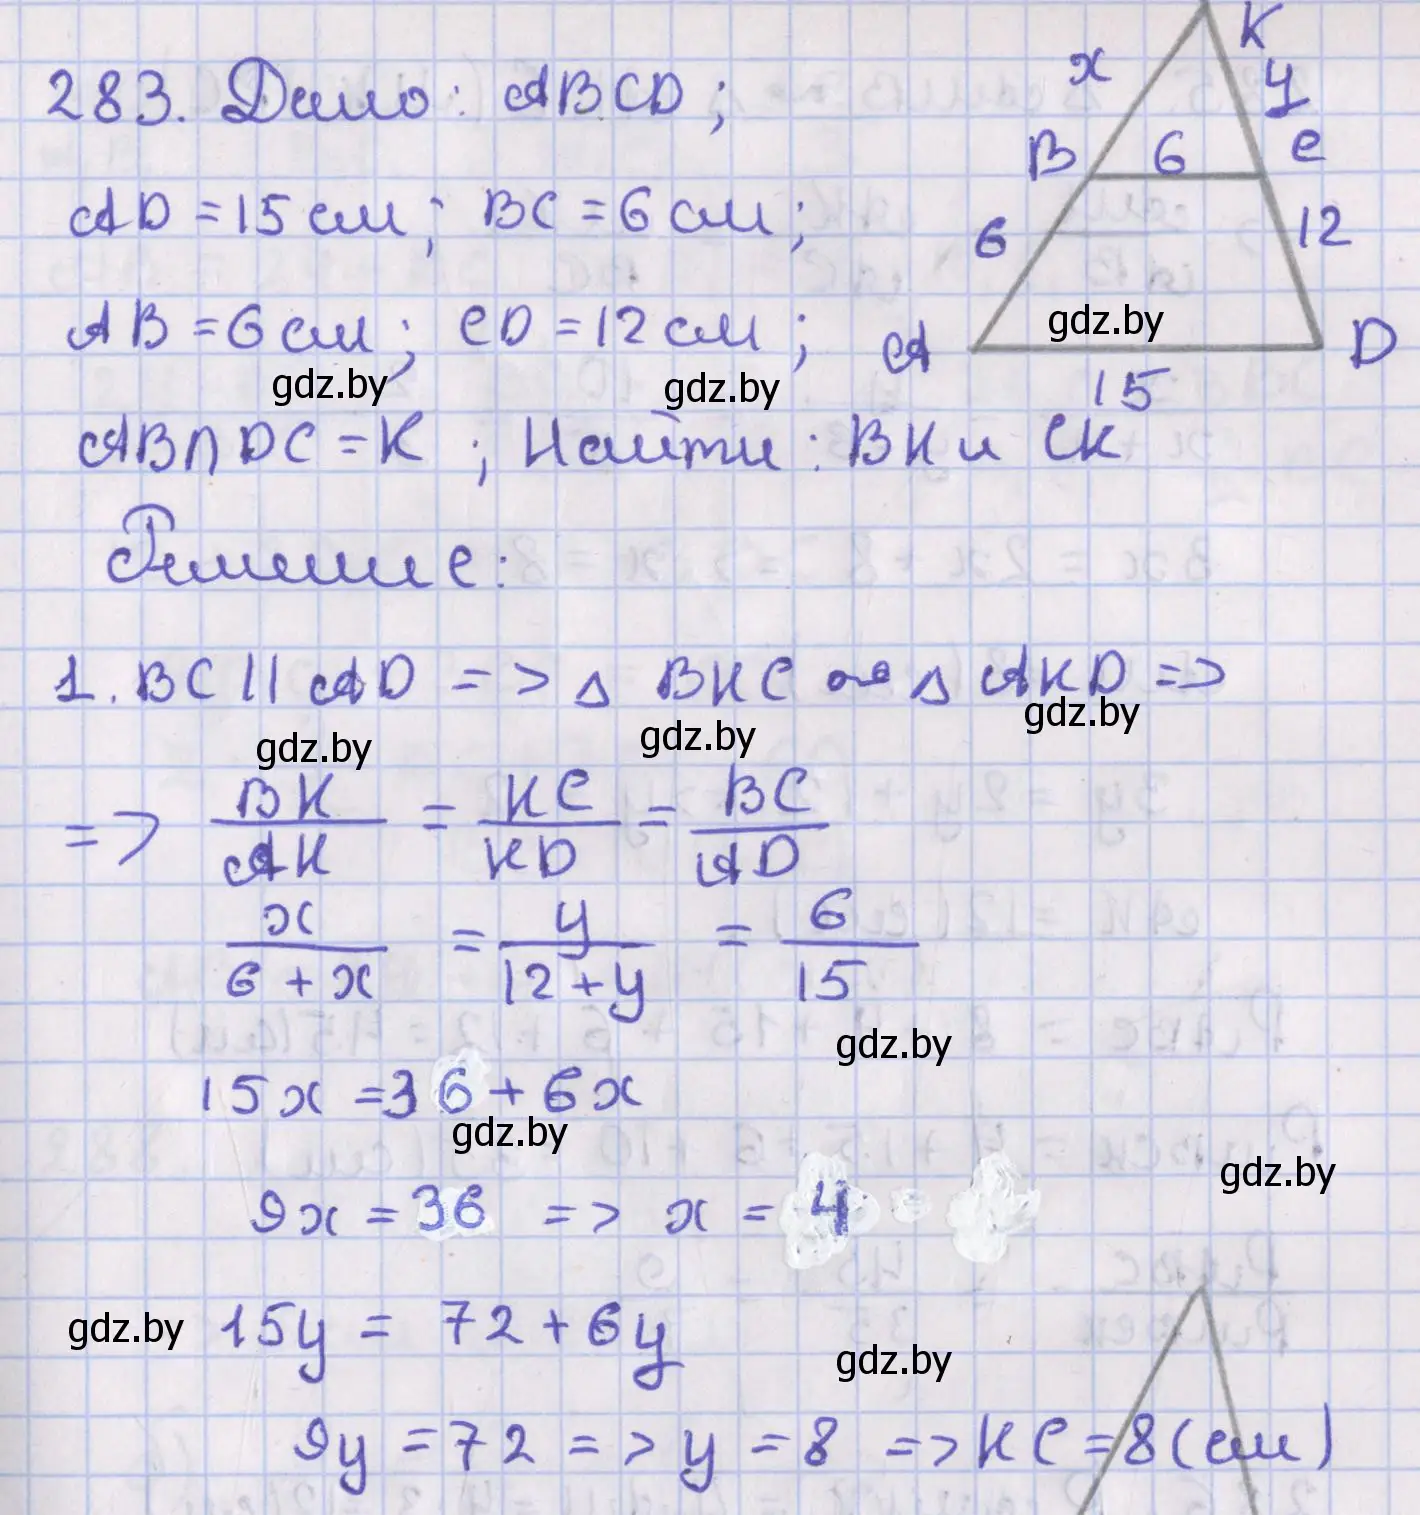 283. Дано: ABCD;
AD = 15 см; BC = 6 см;
AB = 6 см; CD = 12 см;
AB∩DC = K; Найти: BK и CK
K
x
y
B
6
C
6
12
A
D
15
gdz.by
gdz.by
gdz.by
Решение:
1. BC || AD => △ BKC ∾ △ AKD =>
gdz.by
gdz.by
gdz.by
=> BK/AK = KC/KD = BC/AD
x/(6 + x) = y/(12 + y) = 6/15
gdz.by
15x = 36 + 6x
gdz.by
gdz.by
9x = 36 => x = 4
gdz.by
15y = 72 + 6y
gdz.by
9y = 72 => y = 8 => KC = 8 (см)